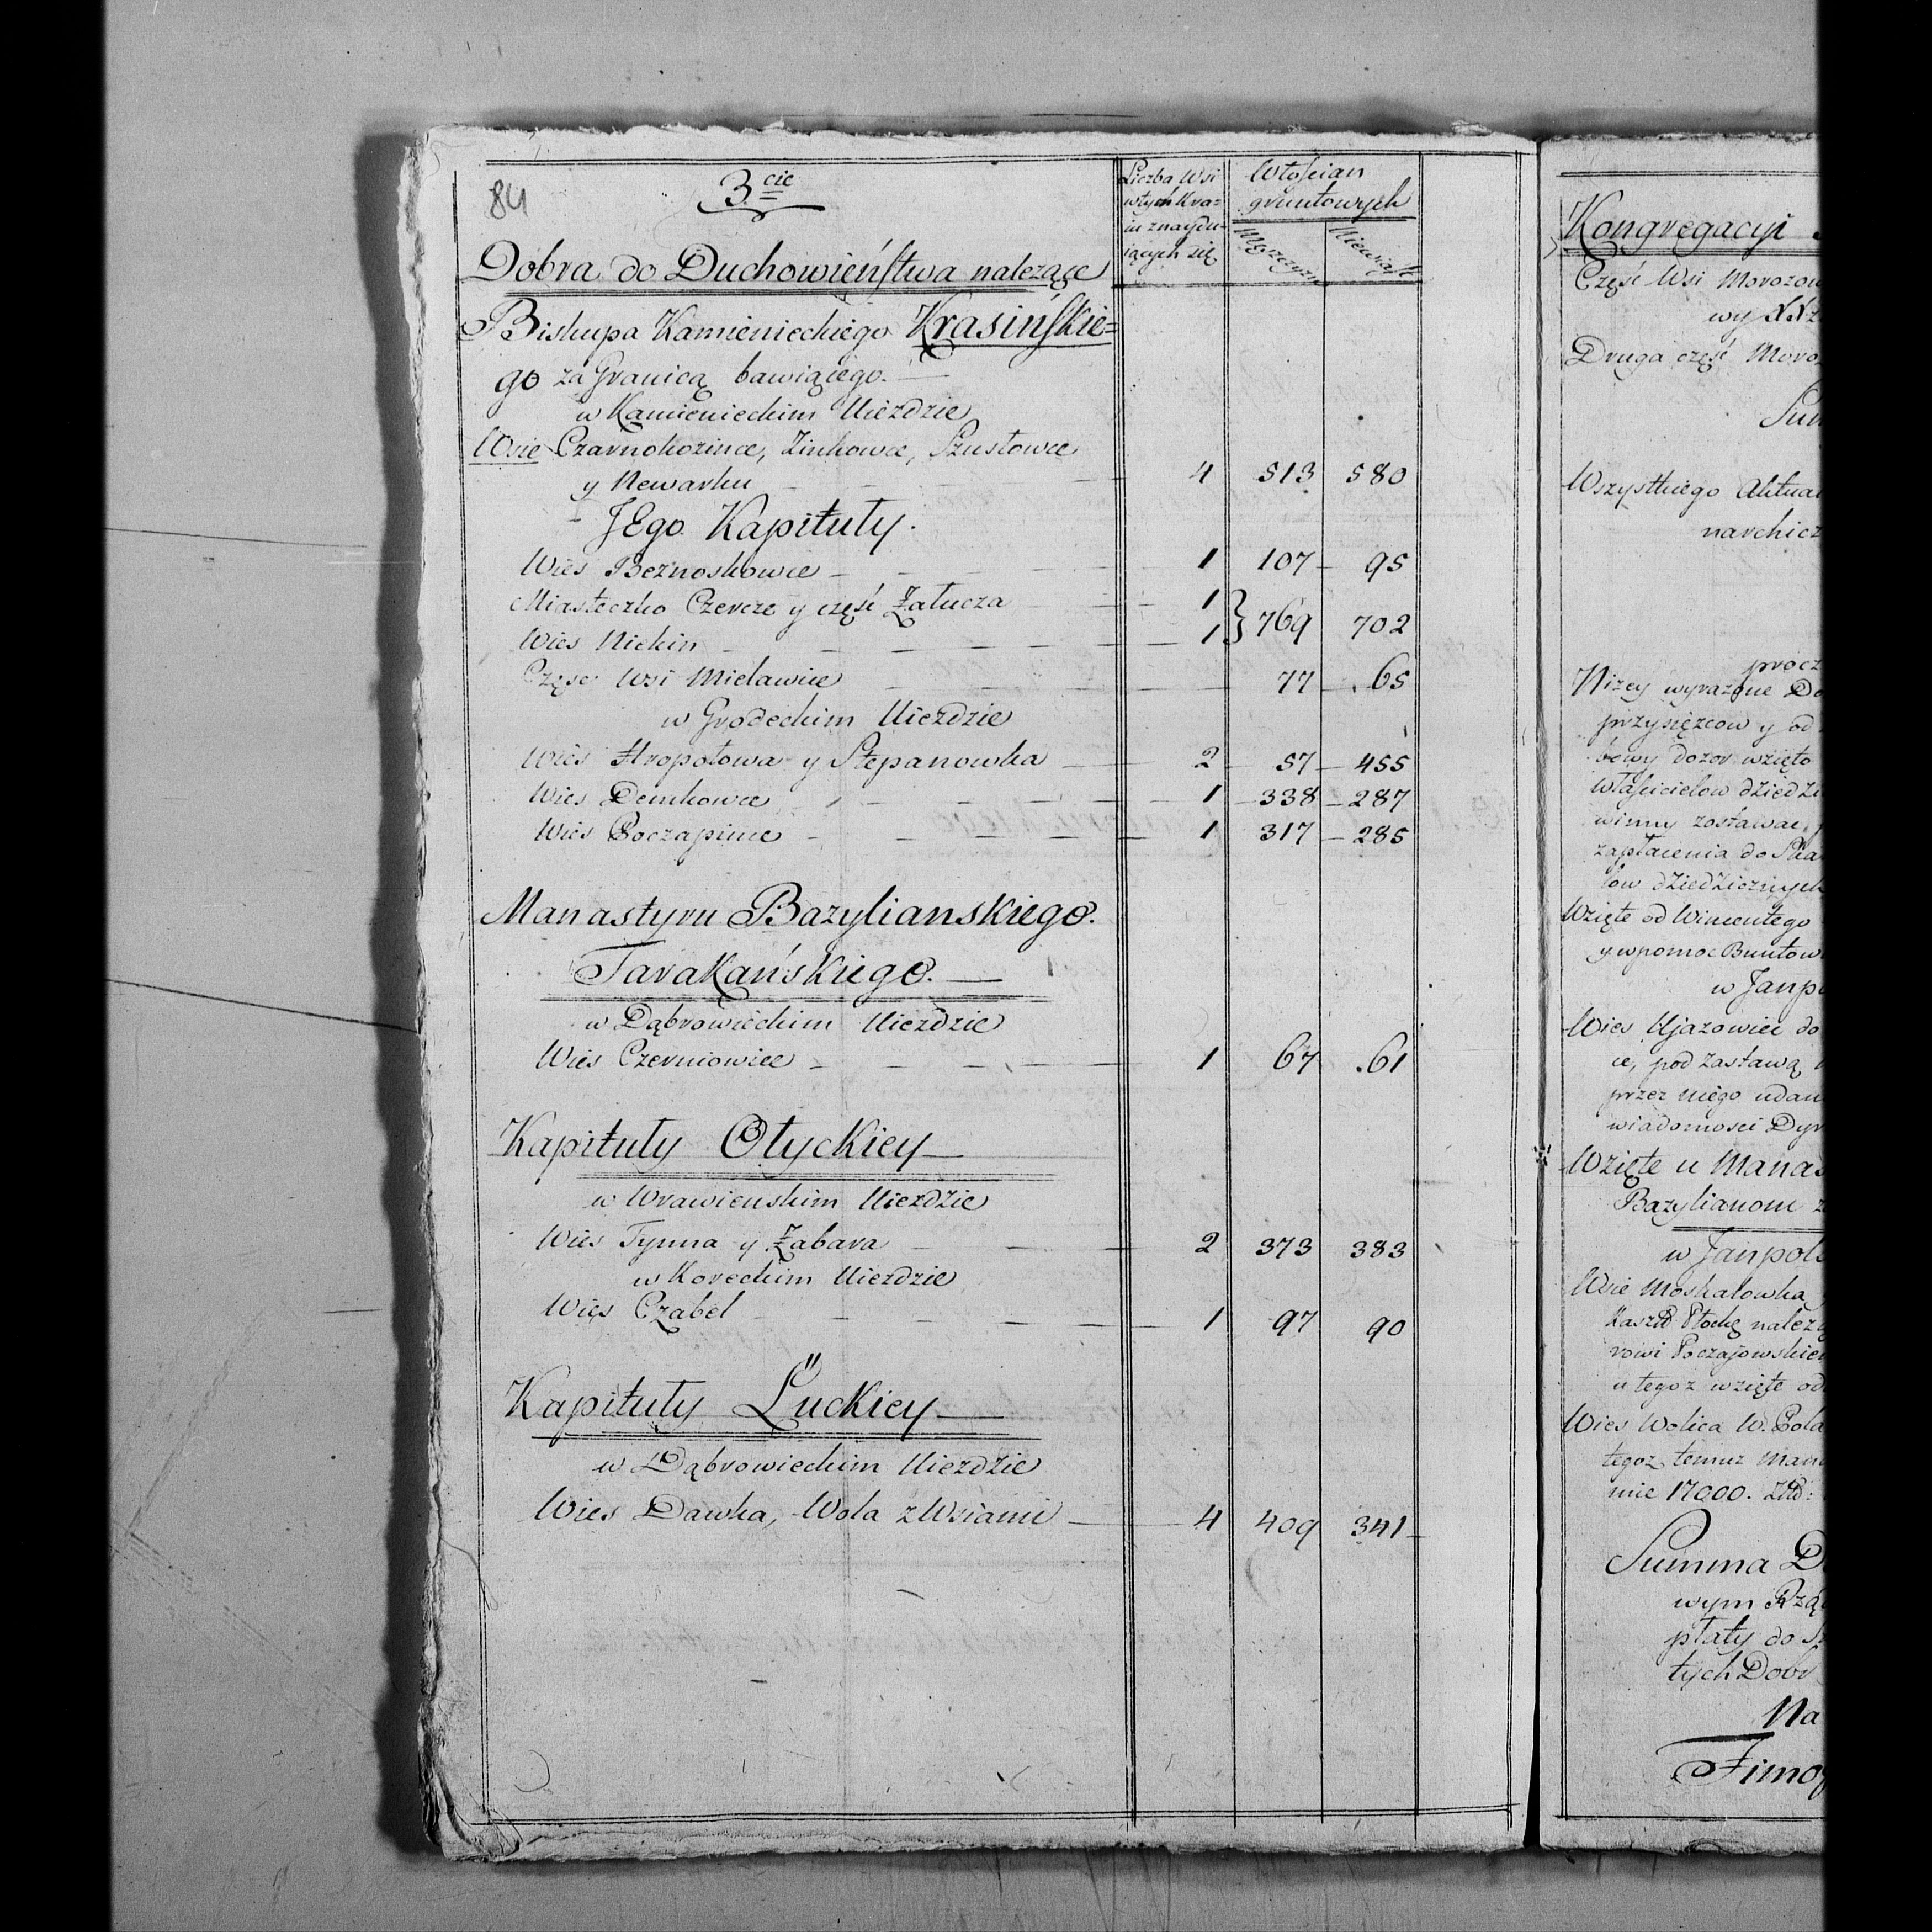 84
3cie
Liczba Wsi
w tych Kra=
iu znaydu=
iących się
Włościan
gruntowych
Męzczyzn
Niewiast
Dobra do Duchowieństwa należące
Biskupa Kamienieckiego Krasińskie=
go za Granicą bawiącego.
w Kamienieckim Uieździe
Wsie Czarnokozince, Zinkowce, Szustowce
y Newarku 4 513 580
JEgo Kapituły.
Wieś Beznoskowce 1 107 95
Miasteczko Czercze y część Załucza 1
Wieś Niehin 1 } 769 702
Część Wsi Mielawice 77 65
w Grodeckim Uieździe
Wieś Hropotowa y Stepanowka 2 57 455
Wieś Demkowce 1 338 287
Wieś Poczapince 1 317 285
Manastyru Bazylianskiego
Tarakańskiego.
w Dąbrowieckim Uieździe
Wieś Czerniowice 1 67 61
Kapituły Ołyckiey
w Wrawienskim Uieździe
Wieś Tynna y Żabara 2 373 383
w Koreckim Uieździe
Wieś Czabel 1 97 90
Kapituły Łuckiey
w Dąbrowieckim Uieździe
Wieś Dawka, Wola z Wsiami 4 409 341
Kongregacyi
Część Wsi Morozow
wy XX
Druga część Moro
Sum
Wszystkiego Aktua
narchicz
procz
Niżey wyrażone Do
przysięzcow y od
bowy dozor wzięto
właścicielow dziedzi
winny zostawac,
zapłacenia do Ska
low dziedzicznych
Wzięte od Wincentego
y w pomoc Buntow
w Janpo
Wieś Ujazowiec do
ce, pod zastawą
przez niego udan
wiadomosci Dyr
Wzięte u Manas
Bazylianom z
w Janpols
Wsie Moskalowka
Kaszta Płochę należą
rowi Poczajowskie
u tegoz wzięte od
Wieś Wolica W. Pola
tegoz temuż Man
mie 17000. Złł:
Summa D
wym Rzą
płaty do S
tych Dobr
Na
Timof